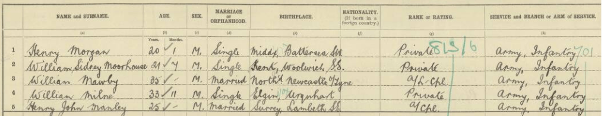 NAME and SURNAME. AGE. SEX. MARRIAGE or ORPHANHOOD. BIRTHPLACE. NATIONALITY. (If born in a foreign country.) RANK or RATING. SERVICE and BRANCH or ARM of SERVICE.
Years. Months.
1 Henry Morgan 20 1 M. Single Middx, Battersea SW Private 8/3/6 Army, Infantry 701
2 William Sidney Moorhouse 21 7 M. Single Kent, Woolwich S.E. Private Army, Infantry
3 William Mawby 35 M. Married North'd Newcastle o/Tyne A/L-Cpl. Army, Infantry
4 William Milne 33 11 M. Single Elgin, Urquhart Private Army, Infantry
5 Henry John Manley 25 M. Married Surrey Lambeth S.E. A/Cpl. Army, Infantry